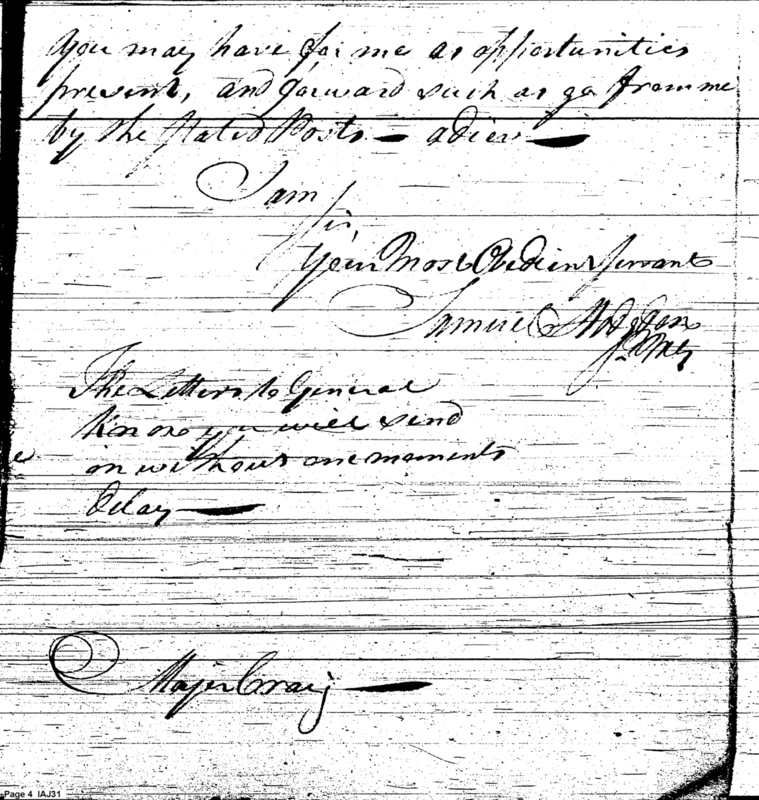 You may have for me as opportunities
present, and forward such as go from me
by the Stated Posts — adieu —
I am
Sir,
Your Most Obedient Servant
Samuel Hodgdon
The Letters to General
Knox you will send
on without one moments
delay —
Major Craig —
Page 4 IAJ31